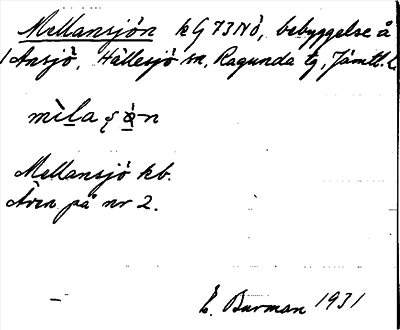 Mellansjön kG 73 NÖ, bebyggelse å
1 Ansjö, Hällesjö sn, Ragunda tg, Jämtl. l.
Mellansjö kb.
Även på nr 2.
E. Burman 1931